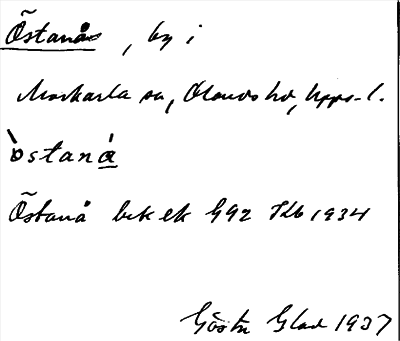 Östanå, by i
Morkarla sn, Olands hd, Upps. l.
òstaná
Östanå bek ek G92 Tb 1934
Gösta Glad 1937